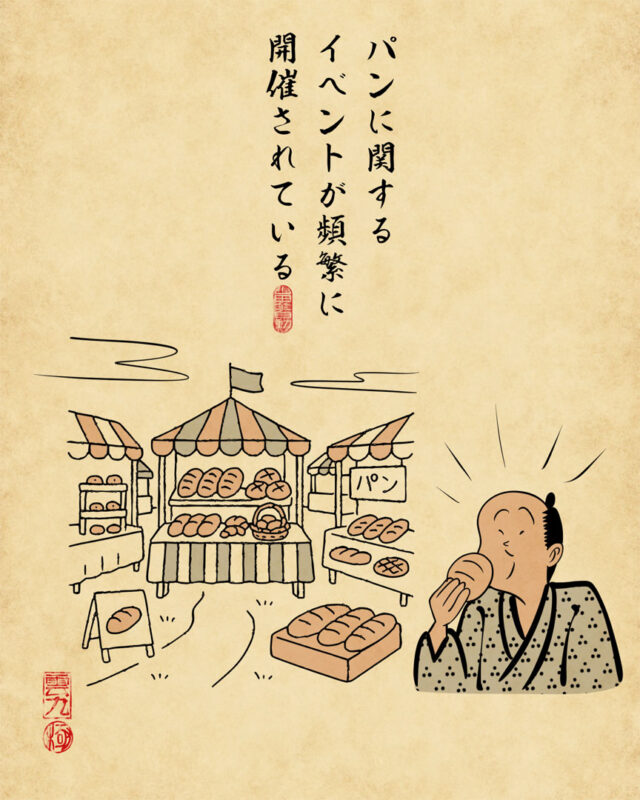 パンに関する
イベントが頻繁に
開催されている
パン